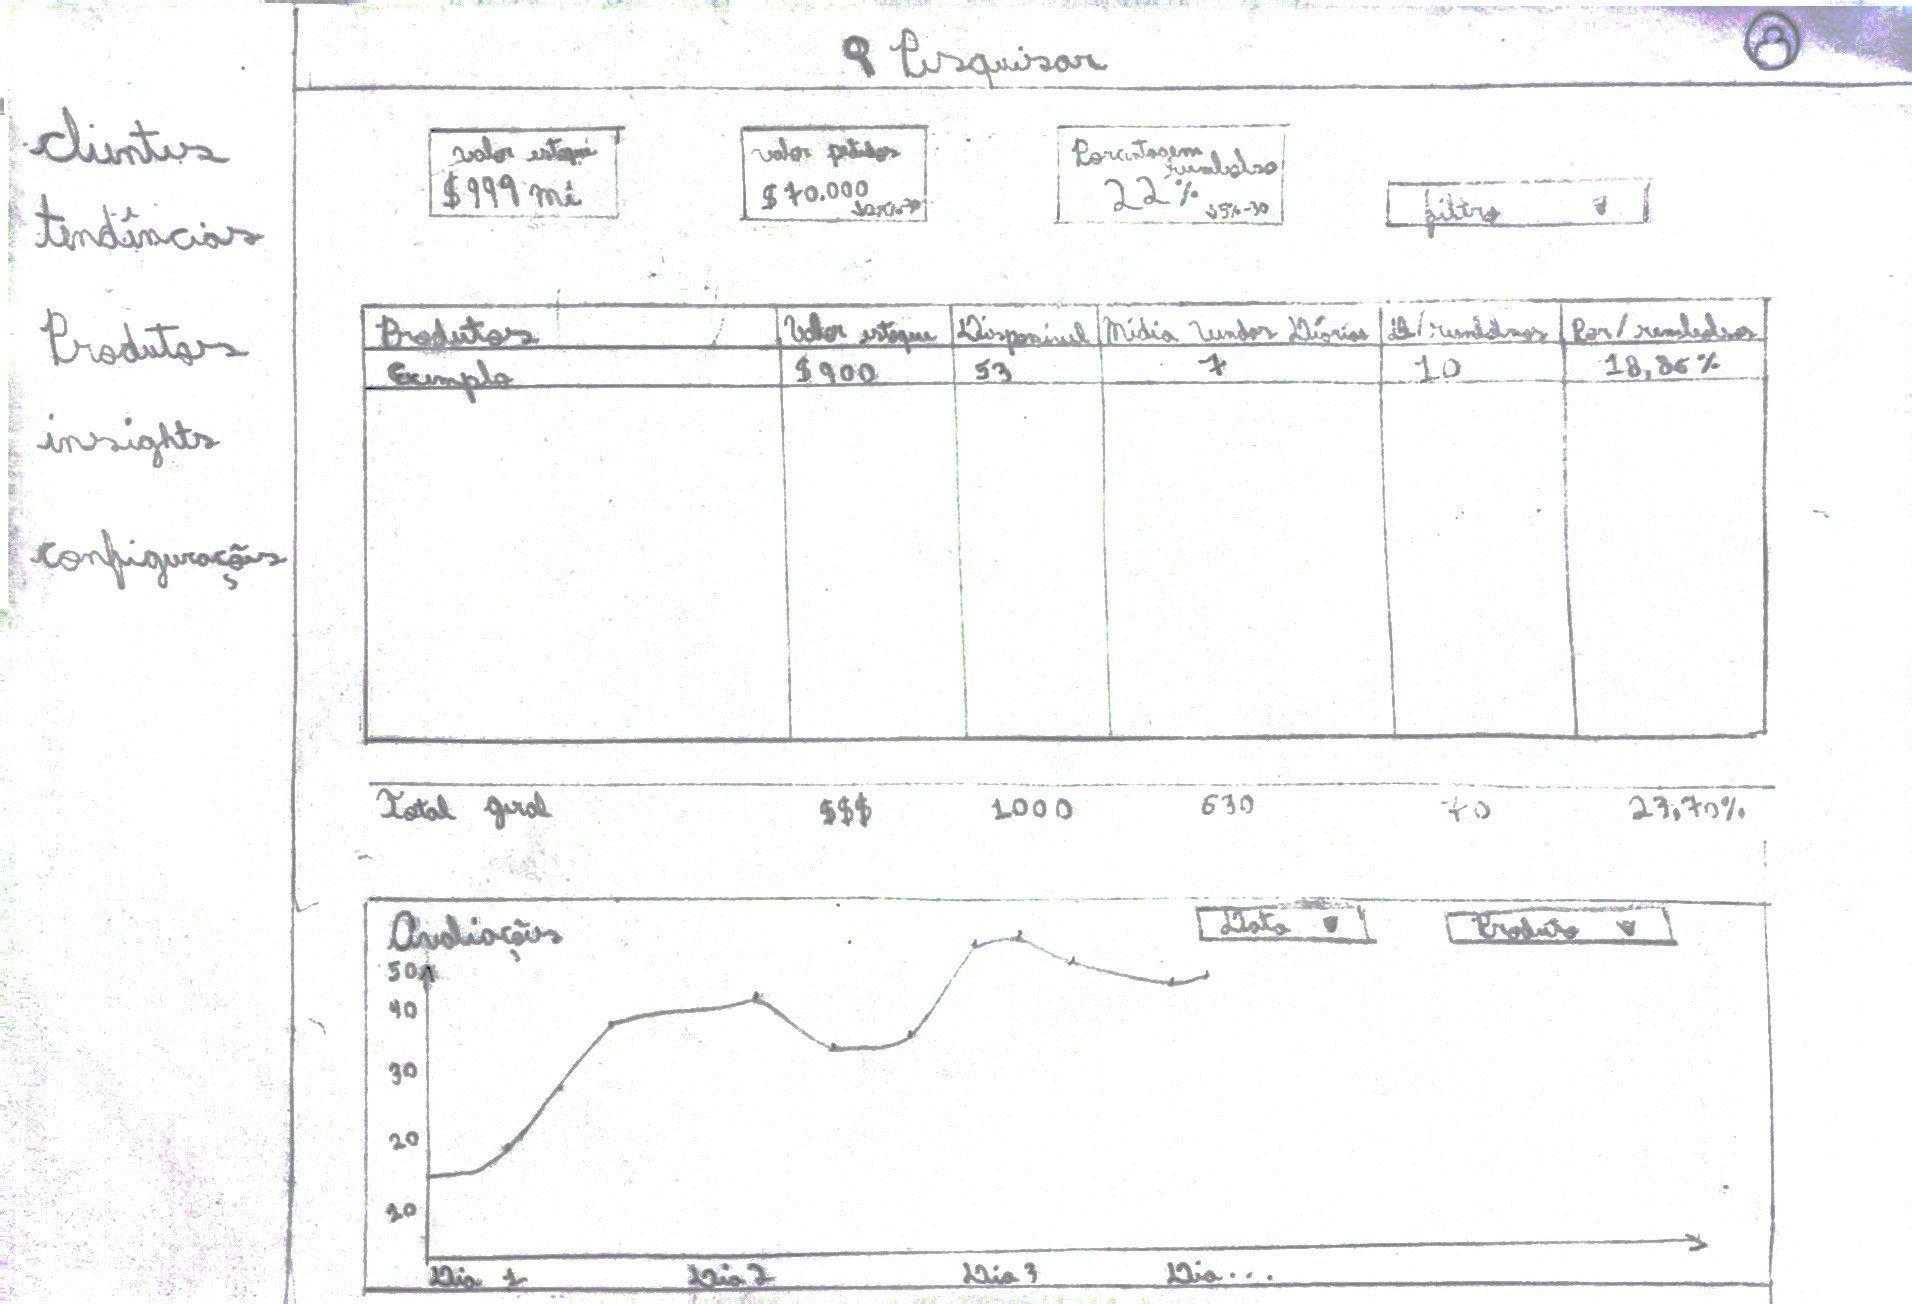 Pesquisar
clientes
tendências
Produtos
insights
configurações
valor estoque
$999 mi
valor pedidos
$70.000
Porcentagem
reembolso
22%
↓5%-30
filtro
Produtos Valor estoque Disponivel Média Vendas Diárias Qt/reembolsos Por/reembolsos
Exemplo $900 53 7 10 18,86%
Total geral $$$ 1000 630 70 23,70%
Avaliações
Data
Produto
50
40
30
20
10
Dia 1 Dia 2 Dia 3 Dia...